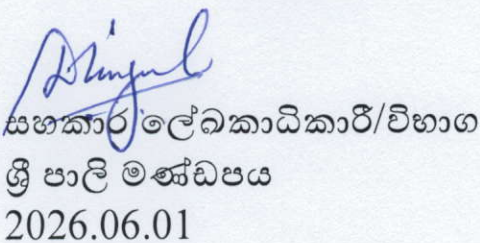 සහකාර ලේඛකාධිකාරී/විභාග
ශ්‍රී පාලි මණ්ඩපය
2026.06.01